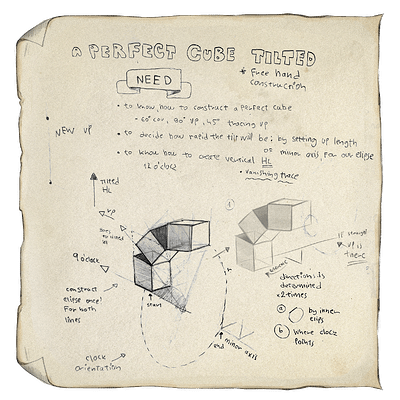 A PERFECT CUBE TILTED
NEED
* Free hand
construction
• to know how to construct a perfect cube
- 60° COV, 90° VP, 45° tracing VP
NEW VP
• to decide how rapid the tilt will be; by setting up length
of minor axis for our elipse
• to know how to create vertical HL
12 o'clock
• vanishing trace
Tilted
HL
VP
9 o'clock
construct
elipse once!
For both
lines
start
end
minor axis
clock
orientation
1
VP is
there
direction is
determined
x2 times
a by inner
elips
b where clock
points